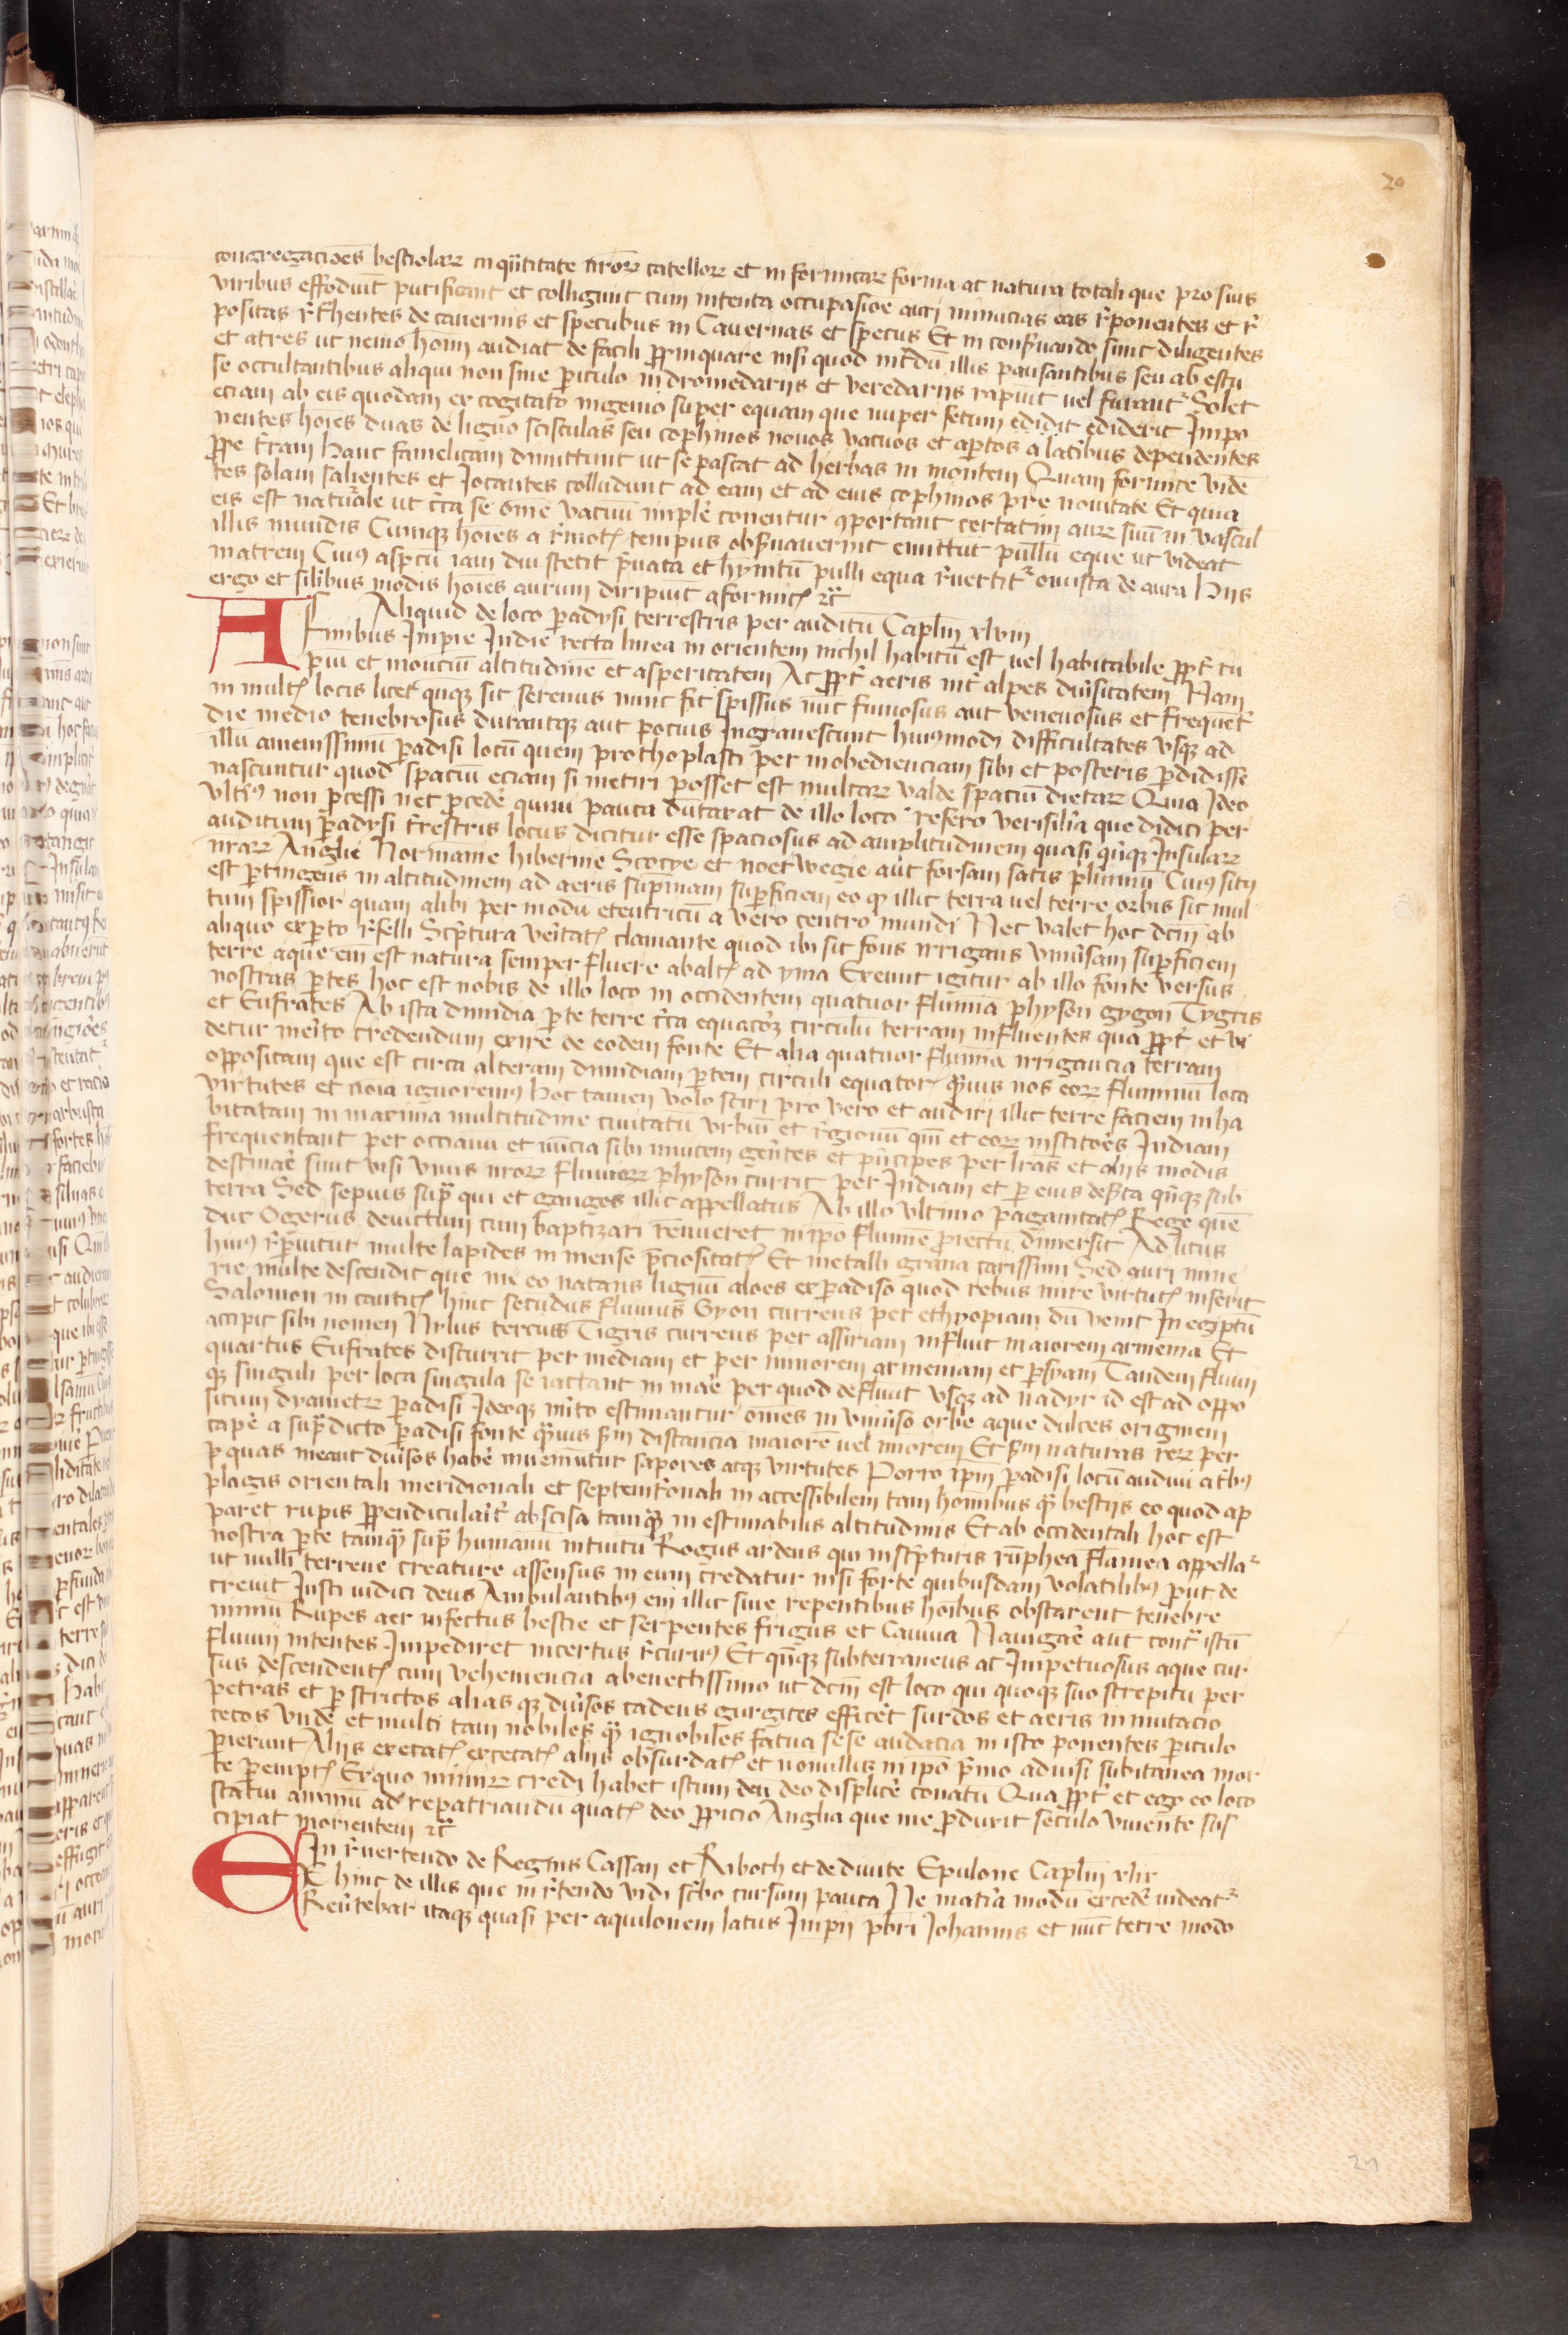 20
congregacōes bestiolaꝝ in qūtitate nr̄oꝝ catelloꝝ et in formicaꝝ forma ac natura totali que pro suis
viribus effodiūt purificant et colligunt cum intenta occupasiōe auri minucias eas r̄ponentes et r̄
positas r̄t̄hentes de cauernis et specubus in Cauernas et specus Et in conſ̄uando sunt diligentes
et atres ut nemo hom̄ audiat de facili ꝓpinquare nisi quod int̄dū illis pausantibus seu ab estu
se occultantibus aliqui non sine ꝑiculo in dromedariis et veredariis rapiūt uel furant̄ Solet
eciam ab eis quodam ex cogitato ingenio super equam que nuper fetum edidit ediderit Impo
nentes hōies duas de ligno scistulas seu cophinos nouos vacuos et aꝑtos a lat̄ibus dependentes
ꝓpe t̄ram hanc famelicam dimittunt ut se pascat ad herbas in montem Quam formice viden̄
tes solam salientes et Jocantes colludunt ad eam et ad eius cophinos pre nouitate Et quia
eis est natur̄ale ut c̄ca se om̄e vacuū imple᷑ conentur ꝯportant certatim auꝝ suū in vascul
illis mundis Cumqꝫ hōies a r̄motꝭ tempus obſ̄uauerint emittūt pullū eque ut videat
matrem Cuiꝰ aspcū iam diu stetit p̄uata et hynitū pulli equa r̄uertit᷑ onusta de auro Hiis
ergo et silibus modis hōies aurum diripiūt a formicꝭ ꝛc̄
Aliquid de loco ꝑadysi terrestris per auditū Caplm̄ xlviii
A Finibus Impie Indie recta linea in orientem nichil habitū est uel habitabile ꝓpt̄ ru
piū et monciū altitudine et asperitatem Ac ꝓpt̄ aeris int̄ alpes diūsitatem Nam
in multꝭ locis licet qn̄qꝫ sit serenus nunc fit spissus nūc fumosus aut venenosus et frequet̄
die medio tenebrosus durantqꝫ aut pocius Ingrauescunt huiꝰmodi difficultates vsqꝫ ad
illū amenissimū ꝑadisi locū quem prothoplasti per inobedienciam sibi et posteris ꝑdidisse
nascuntur quod spaciū eciam si metiri posset est multaꝝ valde spaciū dietaꝝ Quia Ideo
vltiꝰ non ꝓcessi nec ꝓcede᷑ quiui pauca dūtaxat de illo loco refero verisilīa que didici per
auditum ꝑadysi t̄restris locus dicitur esse spaciosus ad amplitudinem quasi qn̄qꝫ Insulaꝝ
nr̄aꝝ Anglie Normanie hibernie Scocye et noetwegie aūt forsam satis pl̄imnū Cuiꝰ situs
est ꝑtingens in altitudinem ad aeris sup̄mam suꝑficiem eo ꝙ illic terra uel terre orbis sit mul
tum spissior quam alibi per modū ecentricū a vero centro mundi Nec valet hoc dcm̄ ab
aliquo exꝑto r̄felli Sc̄ptura ūitatꝭ clamante quod ibi sit fons irrigans vniūsam suꝑficiem
terre aque em̄ est natura semper fluere ab altꝭ ad yma Exeunt igitur ab illo fonte versus
nostras ꝑtes hoc est nobis de illo loco in occidentem quatuor flumina physon gygon Tygris
et Eufrates Ab ista dimidia ꝑte terre c̄ca equatoꝝ circulū terram influentes qua ꝓpt̄ et vi
detur mēito credendum exire de eodem fonte Et alia quatuor flumina irrigancia terram
oppositam que est circa alteram dimidiam ꝑtem circuli equatorꝭ q̄uis nos eoꝝ fluminū loca
virtutes et noīa ignoremꝰ hoc tamen volo sciri pro vero et audiri illic terre faciem inha
bitatam in maxima multitudine ciuitatū vrbiū et r̄gionū qm̄ et eoꝝ institōes Indiam
frequentant per occianū et nūcia sibi inuicem gēntes et pn̄cipes per lr̄as et aliis modis
destinare᷑ sunt visi vnus nr̄oꝝ fluuioꝝ physon currit per Indiam et ꝑ eius deſ̄ta qn̄qꝫ sub
terra Sed sepuis sup̄ qui et ganges illic appellatus Ab illo vltimo paganitatꝭ Rege quē
dux Ogerus deuictum cum baptizari r̄nueret in ip̄o flumine ꝓiectū dimersit Ad litus
huiꝰ r̄ꝑiūtur multe lapides in mense p̄ciositatꝭ Et metalli grana carissimi Sed auri mine
rie multe descendit que me eo natans lignū aloes ex ꝑadiso quod rebus mire virtutꝭ inserit
Salomon in canticꝭ hinc secūdus fluuius Gyon currens per ethyopiam dū venit In egiptū
accipit sibi nomen Nylus tercuss Tigris currens per assiriam influit maiorem armenia Et
quartus Eufrates discurrit per mediam et per minorem armeniam et ꝑsyam Tandem fluuii
qꝫ singuli per loca singula se iactant in mare᷑ per quod defluūt vsqꝫ ad nadyr id est ad oppo
situm dyametꝝ ꝑadisi Ideoqꝫ mīto estimantur om̄es in vniūso orbe aque dulces originem
cape᷑ a sup̄dicto ꝑadisi fonte q̄uis ẜm distancia maiorē uel minorem Et ẜm naturas reꝝ per
ꝑ quas meant diūsos habe᷑ inueniūtur sapores atqꝫ virtutes Porro ip̄m ꝑadisi locū audiui at̄bꝰ
plagis orientali meridionali et septemt̄onali in accessibilem tam hom̄ibus q̄ bestiis eo quod ap
paret rupis ꝑpendiculaīt̄ abscisa tamq̄ in estimabilis altitudinis Et ab occidentali hoc est
nostra ꝑte tamq̄ sup̄ humanū intuitū Rogus ardens qui in sc̄pturis rūphea flamea appella᷑
ut nulli terrene creature assensus in eum credatur nisi forte quibusdam volatilibꝰ put de
creuit Justi iudici deus Ambulantibꝰ em̄ illic siue repentibus hōibus obstarent tenebre
nimiū Rupes aer infectus bestie et serpentes frigus et Cauma Nauigare᷑ aut cont̄ istū
fluuii intentes Impediret incertus t̄curiꝰ Et qn̄qꝫ subterraneus ac Impetuosus aque cur
sus descendentꝭ cum vehemencia ab enectissimo ut dcm̄ est loco qui quoqꝫ suo strepitu per
petras et ꝑ strictos alias qꝫ diūsos cadens gurgites effice᷑t surdos et aeris in mutacio
tecos vnde et multi tam nobiles q̄ ignobiles fatua sese audacia in isto ponentes ꝑiculo
ꝑierunt Aliis execatꝭ excecatꝭ aliis obsurdatꝭ et nonullis in ip̄o p̄mo aduisi subitanea mor
te ꝑemptꝭ Ex quo nimiꝝ credi habet istum deu deo displice᷑ conatū Qua ꝓpt̄ et ego eo loco
statui animū ad reꝑatriandū quatꝭ deo ꝓpicio Anglia que me ꝓduxit seculo viuente sus
cipiat morientem ꝛc̄
In r̄uertendo de Regnis Cassan et Riboth et de diuite Epulone Caplm̄ xlix
Et hinc de illis que in r̄tendo vidi sc̄bo cursum pauca Ne mat̄ia modū excede᷑ uideat᷑
Reūtebar itaqꝫ quasi per aquilonem latus Imꝑii pbri Johannis et nūc terre modo
21